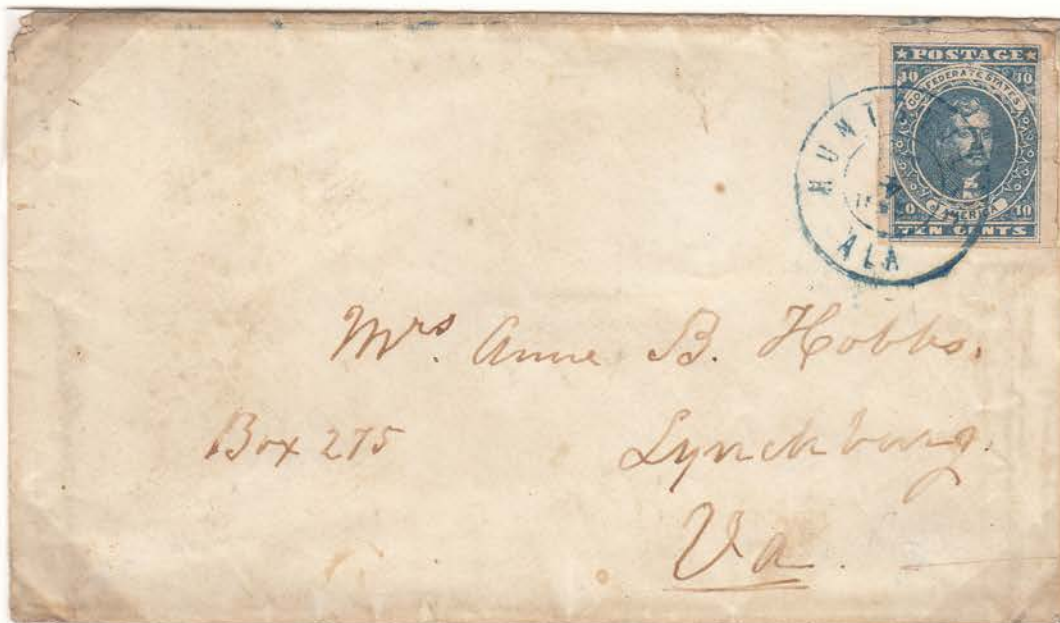 ★ POSTAGE ★
10 10
CONFEDERATE STATES
AMERICA
10 10
TEN CENTS
ALA
Mrs. Anne B. Hobbs.
Box 275
Lynchburg.
Va.